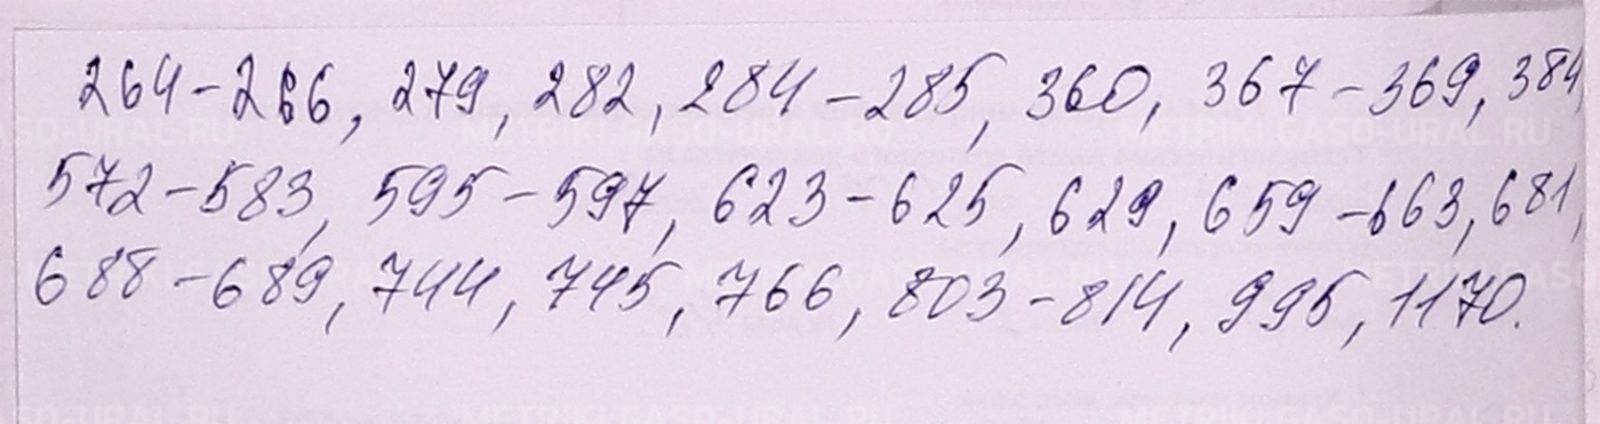 264-266, 279, 282, 284-285, 360, 367-369, 384,
572-583, 595-597, 623-625, 629, 659-663, 681,
688-689, 744, 745, 766, 803-814, 995, 1170.
METRIKI.GASO-URAL.RU